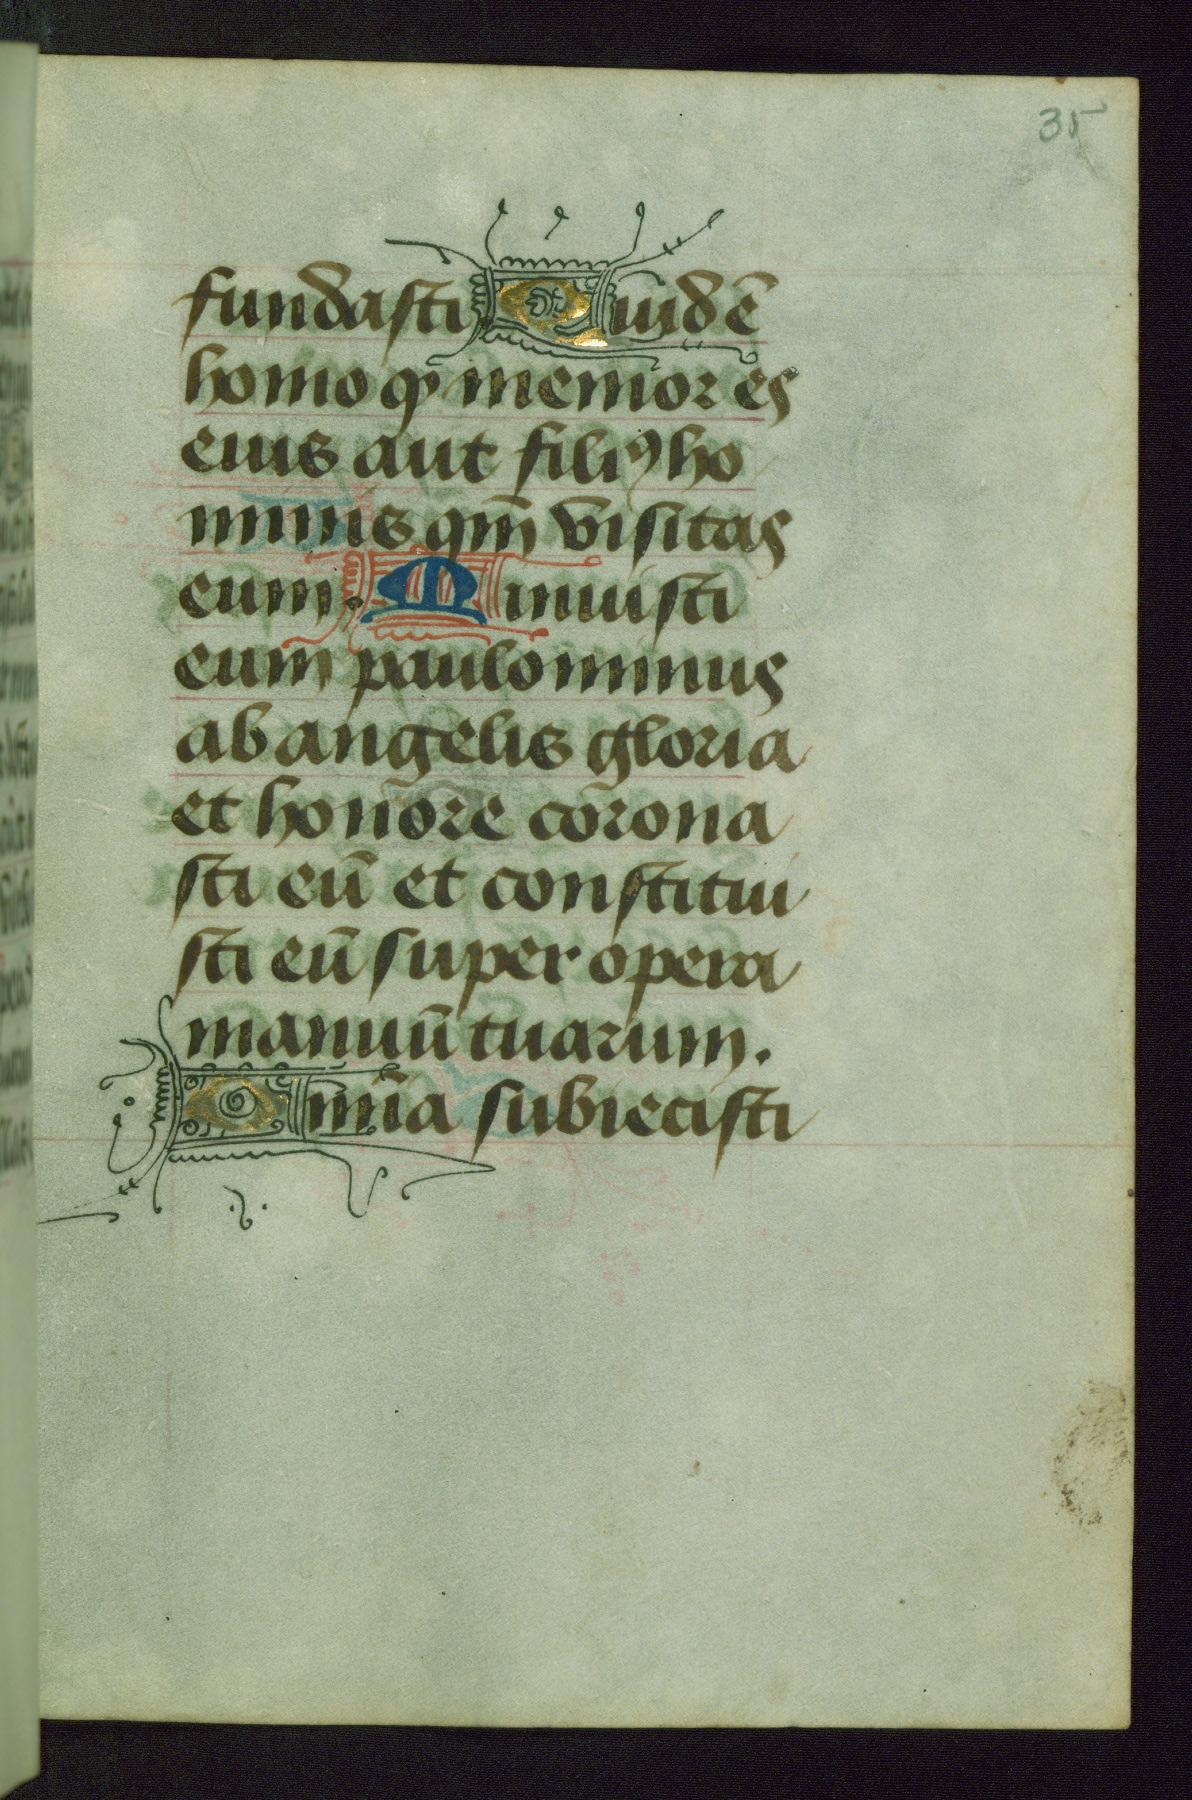 35
fundasti Quid ē
homo qͥ memor es
eius aut filiꝰ ho
minis qm̄ visitas
eum. Minuisti
eum paulominus
ab angelis gloria
et honore corona
sti eū et constitui
sti eū super opera
manuū tuarum.
Omīa subiecisti